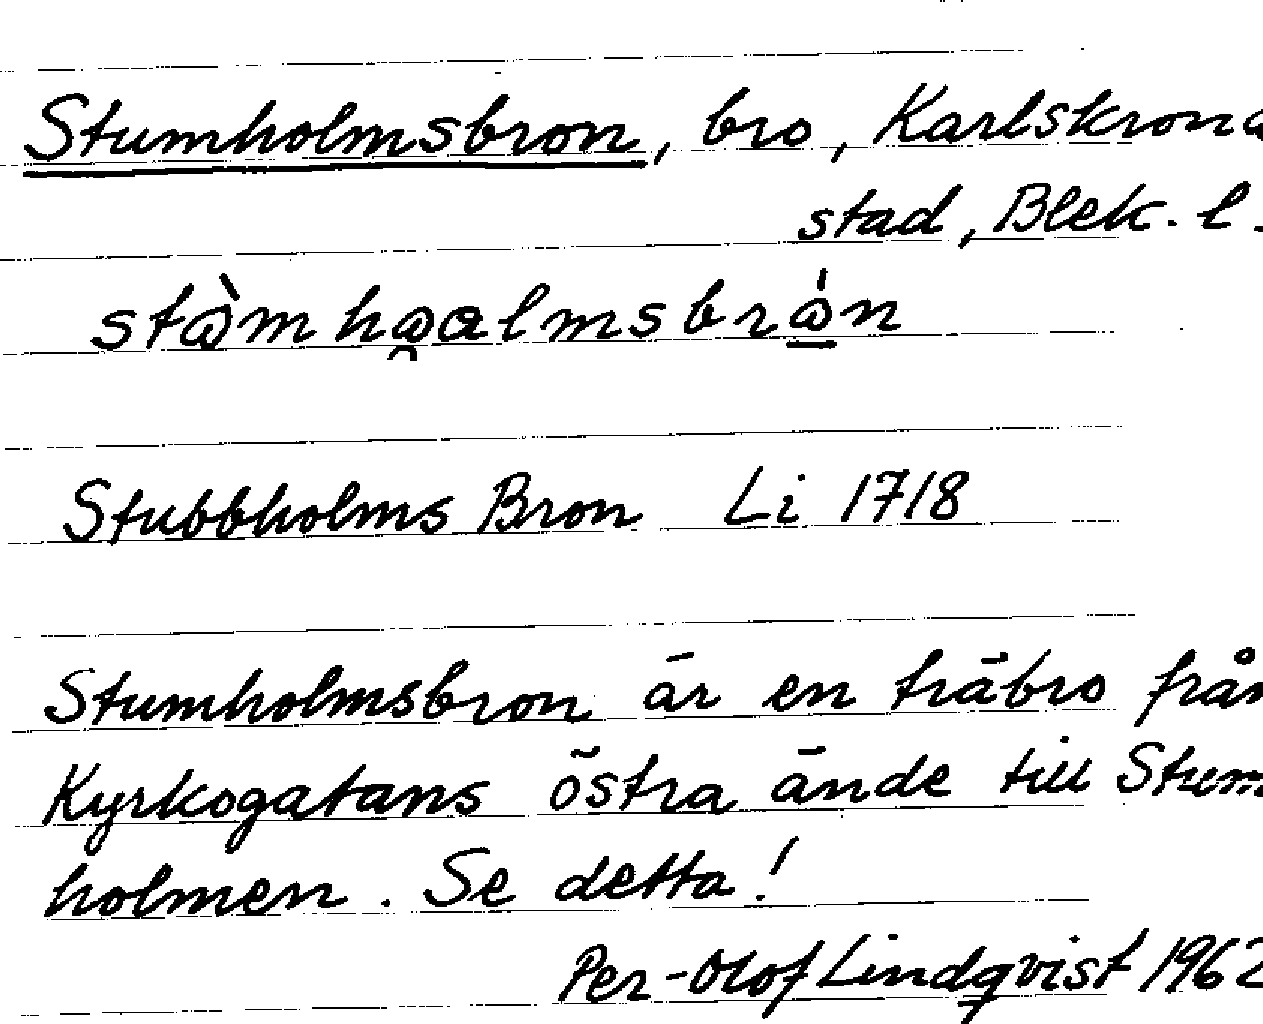 Stumholmsbron, bro, Karlskrona
stad, Blek. l.
Stubbholms Bron Li 1718
Stumholmsbron är en träbro från
Kyrkogatans östra ände till Stum
holmen. Se detta!
Per-Olof Lindqvist 1962